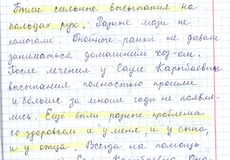 Были сильные высыпания на
пальцах рук. Разные мази не
помогали. Гнойные ранки не давали
заниматься домашним хоз-ом.
После лечения у Сауле Карыбаевны
высыпания полностью прошли
и больше за многие годы не появля-
лись. Ещё были разные проблемы
со здоровьем и у меня и у сына,
и у отца. Всегда на помощь
Сауле Карыбаевна. Она